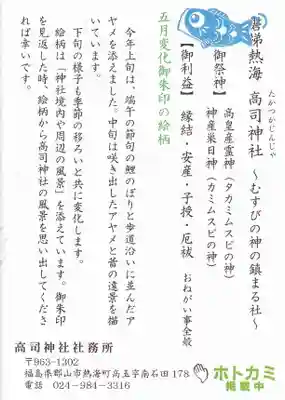 磐梯熱海 高司神社 ～むすびの神の鎮まる社～
たかつかじんじゃ
【御祭神】 高皇産霊神(タカミムスビの神)
神産巣日神(カミムスビの神)
【御利益】 縁結・安産・子授・厄祓 おねがい事全般
五月変化御朱印の絵柄
今年上旬は、端午の節句の鯉のぼりと歩道沿いに並んだア
ヤメを添えました。中旬は咲き出したアヤメと昔の遠景を描
いています。
下旬の様子も季節の移ろいと共に変化します。
絵柄は「神社境内や周辺の風景」を添えています。御朱印
を見返した時、絵柄から高司神社の風景を思い出してくださ
れば幸いです。
高司神社社務所
〒963-1302
福島県郡山市熱海町高玉字南石田178
電話 024-984-3316
ホトカミ
掲載中